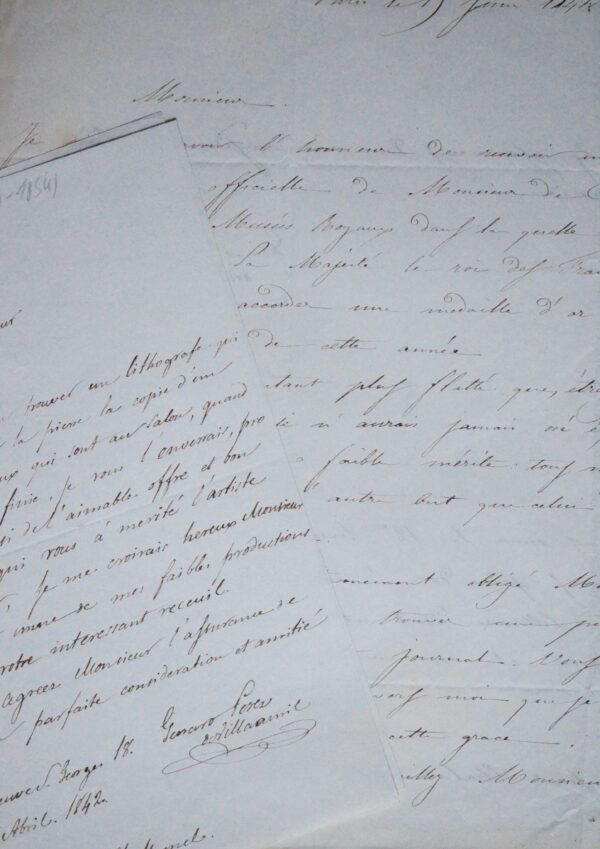 Paris le
Monsieur.
Je
avons l'honneur de recevoir un
officielle de Monsieur de
Musées Royaux dans la quelle
Sa Majésté le roi des Fran
accorder une medaille d'or
de cette année
tant plus flatté que, étr
je n'aurais jamais osé
faible mérite tous
autre but que celui
obligé
trouver un pe
journal. Vous
vers moi que je
cette grace.
Monsieur
1854)
eur
trouver un lithografe qui
la pierre la copie d'un
ux qui sont au salon, quand
finie, je vous l'enverrais, pro
si de l'aimable offre et bon
qui vous à mérité l'artiste
Je me croirais hereux Monsieur
de mes faibles productions
votre interessant receuil.
Agreez Monsieur l'assurance de
parfaite consideration et amitié
Genaro Perez
de Villaamil
euve S. Georges 18.
Abril. 1842